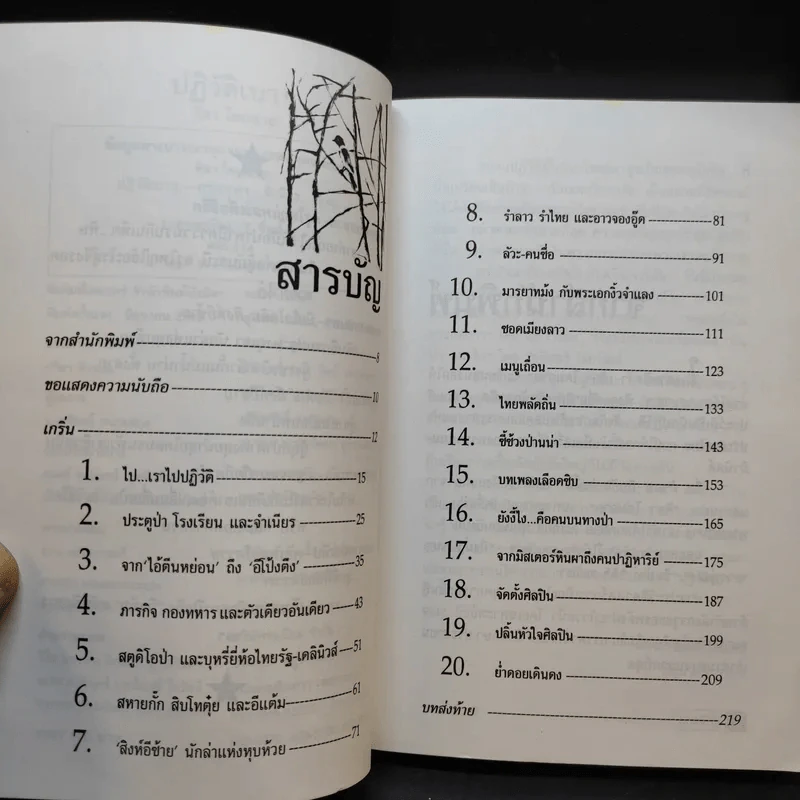 สารบัญ
จากสำนักพิมพ์ 8
ขอแสดงความนับถือ 10
เกริ่น 12
1. ไป...เราไปปฏิวัติ 15
2. ประตูป่า โรงเรียน และจำเนียร 25
3. จาก'ไอ้ตีนหย่อน' ถึง 'อีโป้งตึง' 35
4. ภารกิจ กองทหาร และตัวเดียวอันเดียว 43
5. สตูดิโอป่า และบุหรี่ยี่ห้อไทยรัฐ-เดลินิวส์ 51
6. สหายกั๊ก สิบโทตุ๋ย และอีแต้ม 61
7. 'สิงห์อีซ้าย' นักล่าแห่งหุบห้วย 71
8. รำลาว รำไทย และอาวจองอู๊ด 81
9. ลัวะ-คนซื่อ 91
10. มารยาทม้ง กับพระเอกงิ้วจำแลง 101
11. ซอดเมียงลาว 111
12. เมนูเถื่อน 123
13. ไทยพลัดถิ่น 133
14. ซี้ซ้วงป่านน่า 143
15. บทเพลงเลือดซิบ 153
16. ยังงี้ไง...คือคนบนทางป่า 165
17. จากมิสเตอร์หินผาถึงคนปาฏิหาริย์ 175
18. จัดตั้งศิลปิน 187
19. ปลิ้นหัวใจศิลปิน 199
20. ย่ำดอยเดินดง 209
บทส่งท้าย 219